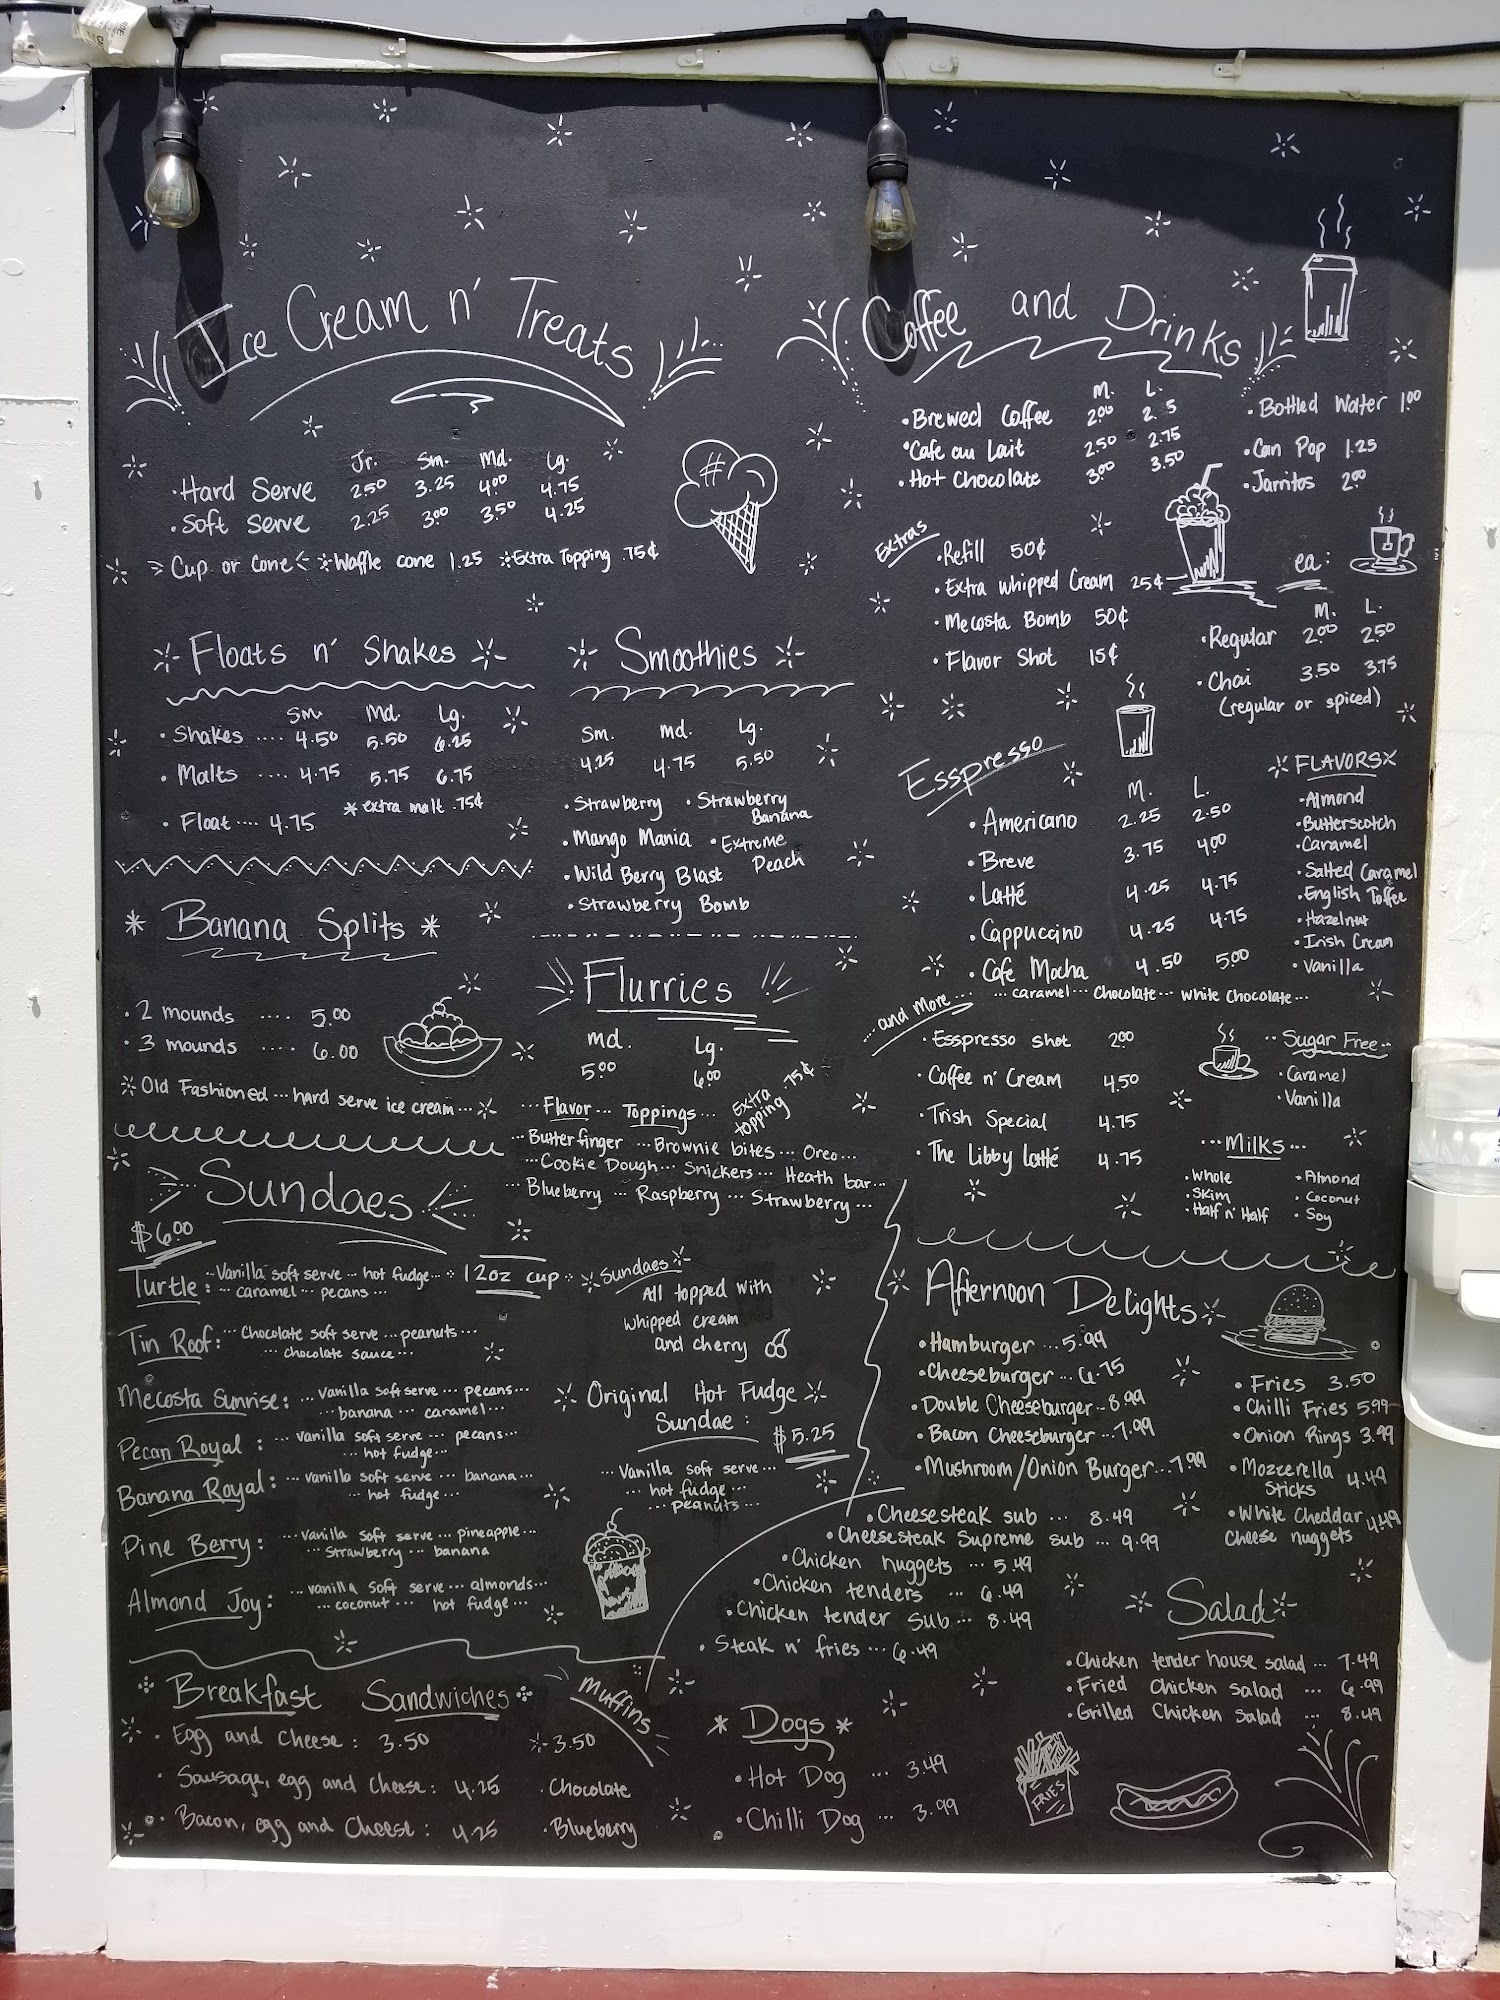 Ice Cream n' Treats
Jr. Sm. Md. Lg.
· Hard Serve 2.50 3.25 4.00 4.75
· Soft Serve 2.25 3.00 3.50 4.25
Cup or Cone Waffle cone 1.25 Extra Topping .75¢
Floats n' Shakes
Sm. Md. Lg.
· Shakes .... 4.50 5.50 6.25
· Malts .... 4.75 5.75 6.75
* extra malt .75¢
· Float .... 4.75
Smoothies
Sm. md. Lg.
4.25 4.75 5.50
· Strawberry · Strawberry Banana
· Mango Mania · Extreme Peach
· Wild Berry Blast
· Strawberry Bomb
* Banana Splits *
· 2 mounds .... 5.00
· 3 mounds .... 6.00
Old Fashioned ... hard serve ice cream ...
Flurries
md. Lg.
5.00 6.00
Extra topping .75¢
... Flavor ... Toppings ...
... Butterfinger ... Brownie bites ... Oreo ...
... Cookie Dough ... Snickers ... Heath bar ...
Blueberry ... Raspberry ... Strawberry ...
Sundaes
$6.00
Turtle: Vanilla soft serve ... hot fudge ... 12oz cup
... caramel ... pecans ...
Tin Roof: ... chocolate soft serve ... peanuts ...
... chocolate sauce ...
Mecosta Sunrise: ... vanilla soft serve ... pecans ...
... banana ... caramel ...
Pecan Royal : ... vanilla soft serve ... pecans ...
... hot fudge ...
Banana Royal: ... vanilla soft serve ... banana ...
... hot fudge ...
Pine Berry: ... vanilla soft serve ... pineapple ...
... strawberry ... banana
Almond Joy: ... vanilla soft serve ... almonds ...
... coconut ... hot fudge ...
Sundaes
All topped with
whipped cream
and cherry
Original Hot Fudge
Sundae :
$5.25
... Vanilla soft serve ...
... hot fudge ...
... peanuts ...
Breakfast Sandwiches
· Egg and Cheese : 3.50
· Sausage, egg and Cheese : 4.25
· Bacon, egg and Cheese : 4.25
Muffins
3.50
· Chocolate
· Blueberry
Coffee and Drinks
M. L.
· Brewed Coffee 2.00 2. 5
· Cafe au Lait 2.50 2.75
· Hot Chocolate 3.00 3.50
· Bottled Water 1.00
· Can Pop 1.25
· Jarritos 2.00
Extras
· Refill 50¢
· Extra whipped Cream 25¢
· Mecosta Bomb 50¢
· Flavor Shot 15¢
ea:
M. L.
· Regular 2.00 2.50
· Chai 3.50 3.75
(regular or spiced)
Esspresso
M. L.
· Americano 2.25 2.50
· Breve 3.75 4.00
· Latté 4.25 4.75
· Cappuccino 4.25 4.75
· Cafe Mocha 4.50 5.00
... caramel ... Chocolate ... White Chocolate ...
FLAVORS
· Almond
· Butterscotch
· Caramel
· Salted Caramel
· English Toffee
· Hazelnut
· Irish Cream
· Vanilla
... and more ...
· Esspresso shot 2.00
· Coffee n' Cream 4.50
· Irish Special 4.75
· The Libby Latté 4.75
.. Sugar Free ..
· Caramel
· Vanilla
... Milks ...
· Whole · Almond
· Skim · Coconut
· Half n' Half · Soy
Afternoon Delights
· Hamburger ... 5.99
· Cheeseburger ... 6.75
· Double Cheeseburger .. 8.99
· Bacon Cheeseburger ... 7.99
· Mushroom/Onion Burger ... 7.99
· Cheesesteak sub ... 8.49
· Cheesesteak Supreme sub ... 9.99
· Chicken nuggets ... 5.49
· Chicken tenders ... 6.49
· Chicken tender Sub ... 8.49
· Steak n' fries ... 6.49
· Fries 3.50
· Chilli Fries 5.99
· Onion Rings 3.99
· Mozzerella Sticks 4.49
· White Cheddar Cheese nuggets 4.49
Salad
· Chicken tender house salad ... 7.49
· Fried Chicken Salad ... 6.99
· Grilled Chicken Salad ... 8.49
* Dogs *
· Hot Dog ... 3.49
· Chilli Dog ... 3.99
FRIES